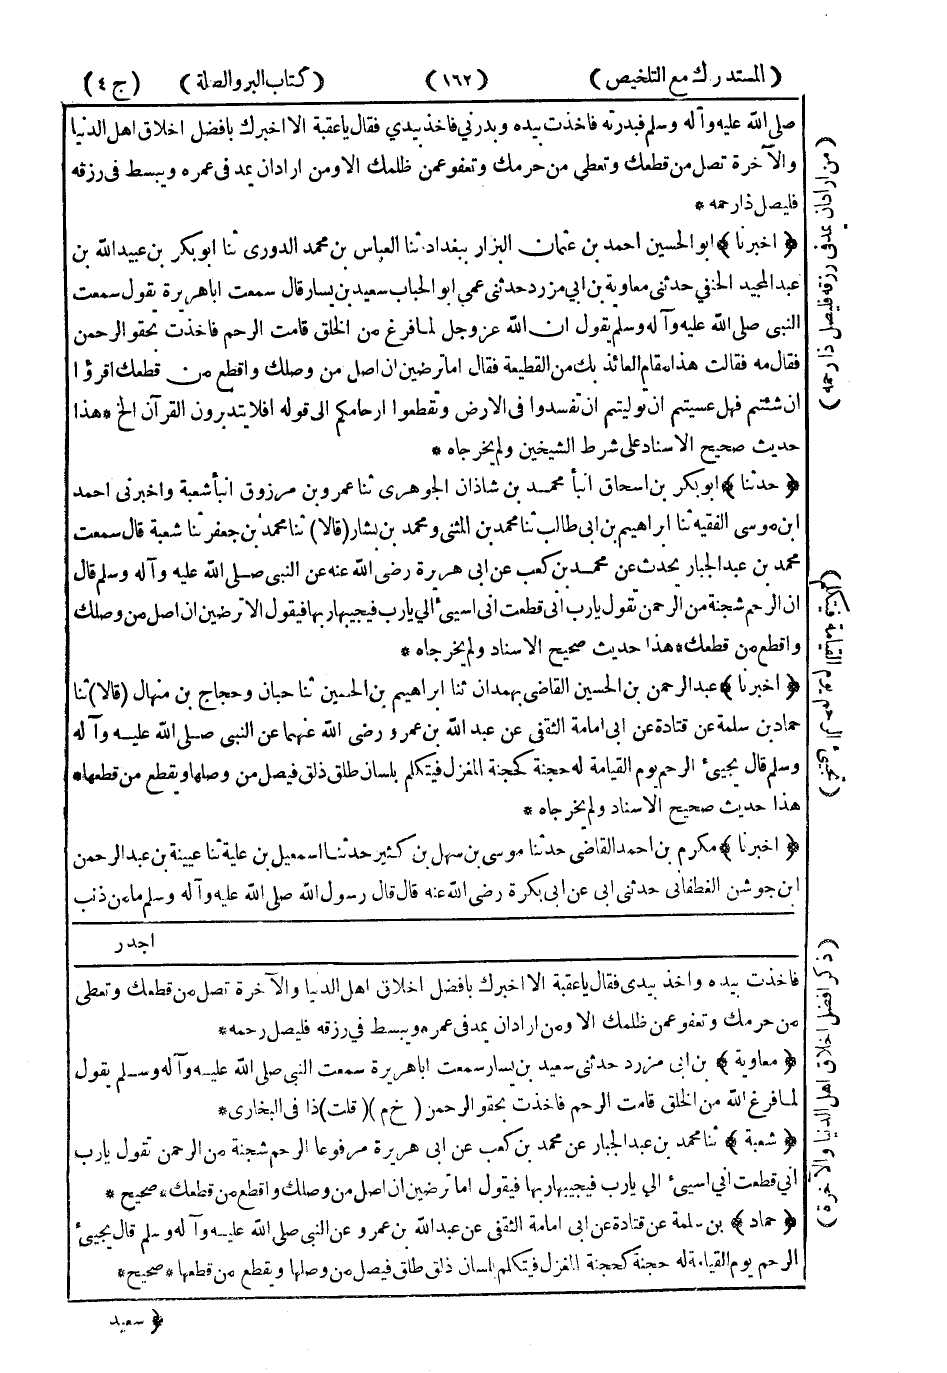 ( المستدرك مع التلخيص ) ( ١٦٢ ) ( كتاب البر والصلة ) ( ج ٤ )
صلى الله عليه وآله وسلم فبدرته فاخذت بيده وبدرني فاخذ بيدي فقال ياعقبة الا اخبرك بافضل اخلاق اهل الدنيا
والآخرة تصل من قطعك وتعطي من حرمك وتعفو عمن ظلمك الا ومن ارادان يمد فى عمره ويبسط فى رزقه
فليصل ذارحمه *
﴿ اخبرنا ﴾ ابو الحسين احمد بن عثمان البزار ببغداد ثنا العباس بن محمد الدورى ثنا ابو بكر بن عبيد الله بن
عبد المجيد الحنفي حدثنى معاوية بن ابي مزرد حدثنى عمي ابو الحباب سعيد بن يسار قال سمعت اباهريرة يقول سمعت
النبى صلى الله عليه وآله وسلم يقول ان الله عز وجل لما فرغ من الخلق قامت الرحم فاخذت بحقو الرحمن
فقال مه فقالت هذا مقام العائذ بك من القطيعة فقال اما ترضين ان اصل من وصلك واقطع من قطعك اقرؤا
ان شئتم فهل عسيتم ان توليتم ان تفسدوا فى الارض وتقطعوا ارحامكم الى قوله افلا يتدبرون القرآن الخ * هذا
حديث صحيح الاسناد على شرط الشيخين ولم يخرجاه *
﴿ حدثنا ﴾ ابو بكر بن اسحاق انبأ محمد بن شاذان الجوهرى ثنا عمرو بن مرزوق انبأ شعبة واخبرنى احمد
ابن موسى الفقيه ثنا ابراهيم بن ابى طالب ثنا محمد بن المثنى ومحمد بن بشار (قالا) ثنا محمد بن جعفر ثنا شعبة قال سمعت
محمد بن عبد الجبار يحدث عن محمد بن كعب عن ابى هريرة رضى الله عنه عن النبى صلى الله عليه وآله وسلم قال
ان الرحم شجنة من الرحمن تقول يارب انى قطعت انى اسيئ الي يارب فيجيبها ربها فيقول الا ترضين ان اصل من وصلك
واقطع من قطعك * هذا حديث صحيح الاسناد ولم يخرجاه *
﴿ اخبرنا ﴾ عبد الرحمن بن الحسين القاضى بهمدان ثنا ابراهيم بن الحسين ثنا حبان وحجاج بن منهال (قالا) ثنا
حماد بن سلمة عن قتادة عن ابى امامة الثقفى عن عبد الله بن عمرو رضى الله عنهما عن النبى صلى الله عليه وآله
وسلم قال يجيئ الرحم يوم القيامة له حجنة كحجنة المغزل فيتكلم بلسان طلق ذلق فيصل من وصلها ويقطع من قطعها *
هذا حديث صحيح الاسناد ولم يخرجاه *
﴿ اخبرنا ﴾ مكرم بن احمد القاضى حدثنا موسى بن سهل بن كثير حدثنا اسمعيل بن علية ثنا عيينة بن عبد الرحمن
ابن جوشن الغطفانى حدثنى ابى عن ابى بكرة رضى الله عنه قال قال رسول الله صلى الله عليه وآله وسلم ما من ذنب
اجدر
فاخذت بيده واخذ بيدى فقال ياعقبة الا اخبرك بافضل اخلاق اهل الدنيا والآخرة تصل من قطعك وتعطى
من حرمك وتعفو عمن ظلمك الا ومن ارادان يمد فى عمره ويبسط في رزقه فليصل رحمه *
﴿ معاوية ﴾ بن ابى مزرد حدثنى سعيد بن يسار سمعت اباهريرة سمعت النبى صلى الله عليه وآله وسلم يقول
لما فرغ الله من الخلق قامت الرحم فاخذت بحقو الرحمن ( خ م )( قلت) ذا فى البخارى *
﴿ شعبة ﴾ ثنا محمد بن عبد الجبار عن محمد بن كعب عن ابى هريرة مرفوعا الرحم شجنة من الرحمن تقول يارب
اني قطعت اني اسيئ الي يارب فيجيبها ربها فيقول اما ترضين ان اصل من وصلك واقطع من قطعك * صحيح *
﴿ حماد ﴾ بن سلمة عن قتادة عن ابى امامة الثقفى عن عبد الله بن عمرو عن النبى صلى الله عليه وآله وسلم قال يجيئ
الرحم يوم القيامة له حجنة كحجنة المغزل فيتكلم بلسان ذلق طلق فيصل من وصلها ويقطع من قطعها * صحيح *
﴿ سعيد
( من ارادان يمد فى رزقه فليصل ذا رحمه )
( يجيئ الرحم يوم القيامة فيتكلم )
( ذكر افضل اخلاق اهل الدنيا والآخرة )